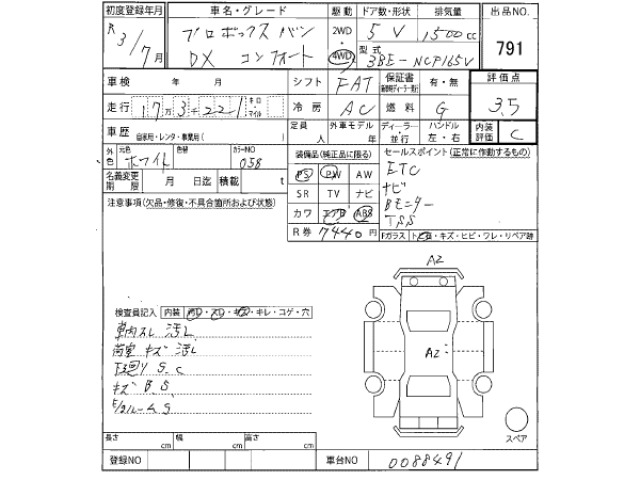 初度登録年月 車名・グレード 駆動 ドア数・形状 排気量 出品NO.
R3/7月 プロボックスバン 2WD 5V 1500cc 791
DX コンフォート 4WD 型式 3BE-NCP165V
車検 年 月 シフト FAT 保証書 有・無 評価点
走行 17万3千221 キロ マイル 冷房 AC 燃料 G 3.5
車歴 自家用・レンタ・事業用( ) 定員 人 外車モデル 年 ディーラー・並行 ハンドル 左・右 内装評価 C
外色 元色 ホワイト 色替 カラーNO 058 装備品(純正品に限る) セールスポイント(正常に作動するもの)
名義変更期限 月 日迄 積載 t PS PW AW ETC
SR TV ナビ ナビ
注意事項(欠品・修復・不具合箇所および状態) カワ エアB ABS Bモニター
R券 7440円 TSS
Fガラス トビ石・キズ・ヒビ・ワレ・リペア跡
A2
検査員記入 内装 ・スレ・キズ・キレ・コゲ・穴
車内スレ 汚レ A2
荷室 キズ 汚レ
下廻り S.C
キズ B.S.
E/gルームS
スペア
長さ cm 幅 cm 高さ cm
登録NO 車台NO 0088491